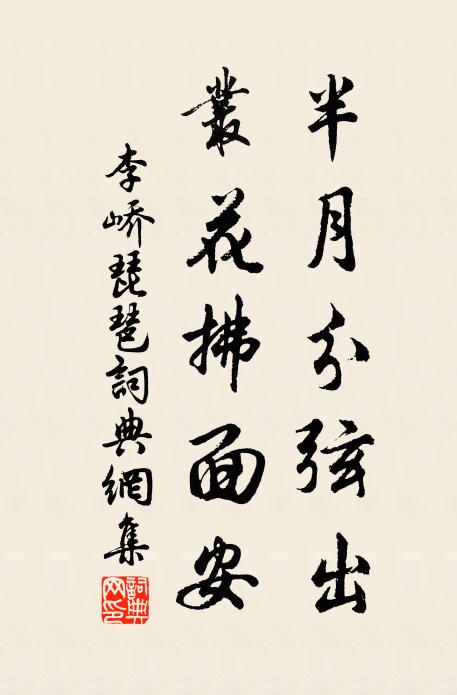 半月分弦出
叢花拂面安
李嶠琵琶詞典網集
詞典網印